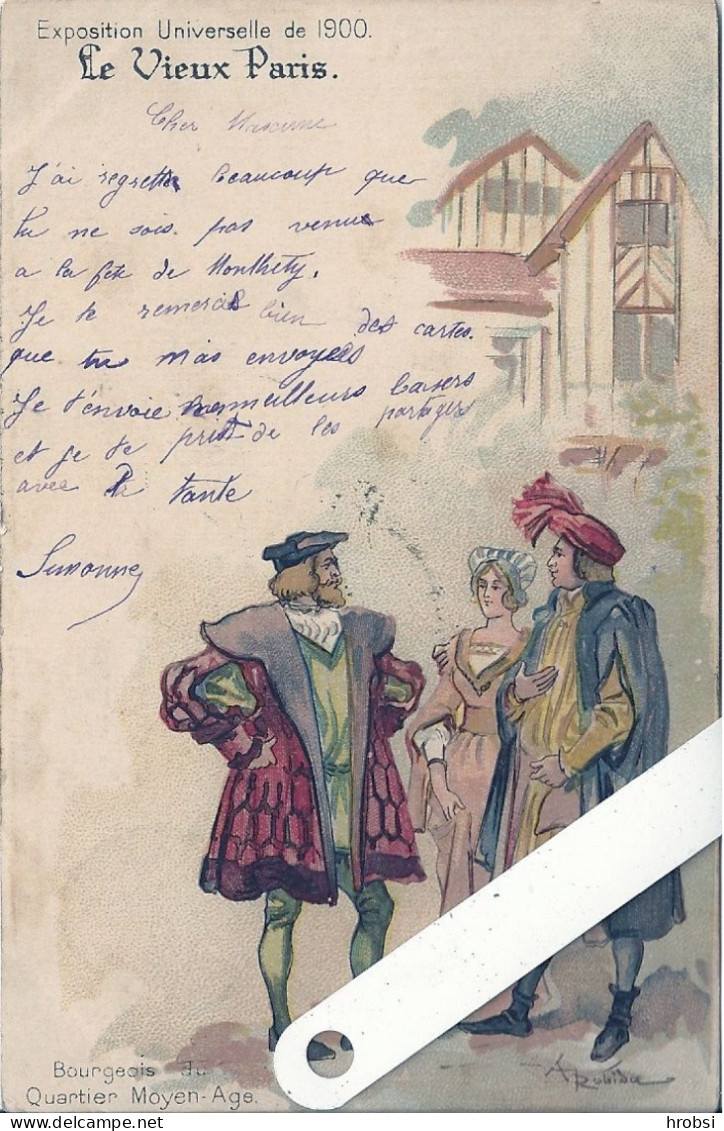 Exposition Universelle de 1900.
Le Vieux Paris.
Cher
J'ai regretté beaucoup que
tu ne sois pas venue
a la fête de Monthéty.
Je te remercis bien des cartes
que tu mas envoyées
Je t'envoie meilleurs baisers
et je te prit de les partager
avec la tante
Simonne
Bourgeois du
Quartier Moyen-Age.
A Robida
hrobsi